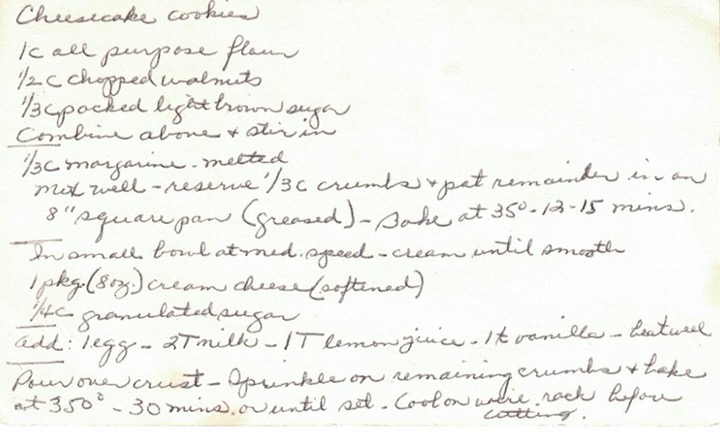 Cheesecake cookies
1c all purpose flour
1/2 c chopped walnuts
1/3 c packed light brown sugar
Combine above & stir in
1/3 c margarine - melted
mix well - reserve 1/3 c crumbs & pat remainder in an
8" square pan (greased) - Bake at 350 - 12-15 mins.
In small bowl at med. speed - cream until smooth
1 pkg. (8oz.) cream cheese (softened)
1/4 c granulated sugar
add: 1 egg - 2T milk - 1T lemon juice - 1t vanilla - beat well
Pour over crust - Sprinkle on remaining crumbs & bake
at 350° - 30 mins. or until set. Cool on wire rack before
cutting.